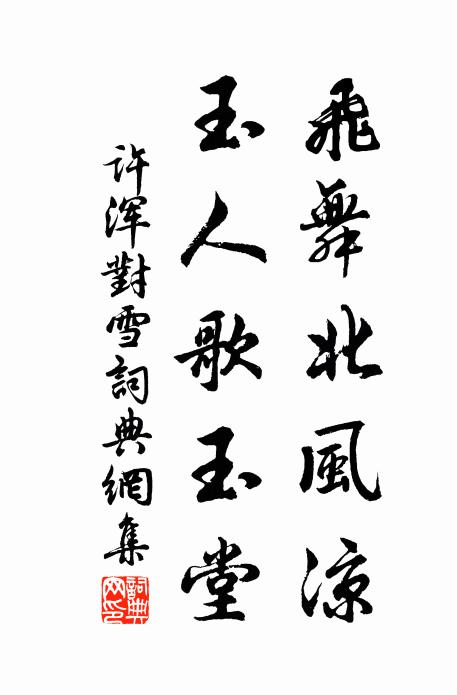 飛舞北風涼
玉人歌玉堂
許渾對雪詞典網集
詞典網印